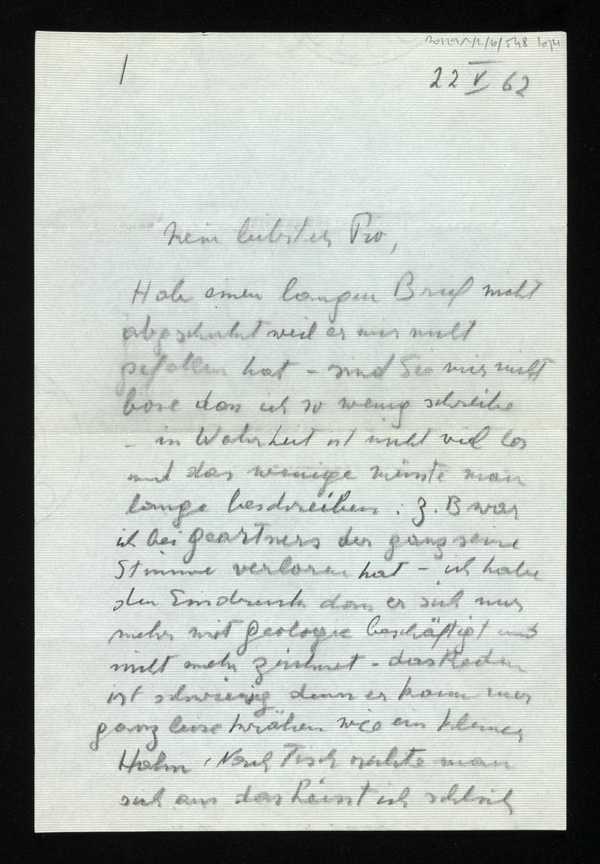 1
22 V 62
Mein liebster Pio,
Habe einen langen Brief nicht
abgeschickt weil er mir nicht
gefallen hat – sind Sie mir nicht
böse dass ich so wenig schreibe
– in Wahrheit ist nicht viel los
und das wenige müsste man
lange beschreiben : z. B war
ich bei Geartners der ganz seine
Stimme verloren hat – ich habe
den Eindruck dass er sich nur
mehr mit Geologie beschäftigt und
nicht mehr zeichnet – das Reden
ist schwierig denn er kann nur
ganz leise krähen wie ein kleiner
Hahn. Nach Tisch ruhte man
sich aus das heisst ich schlich